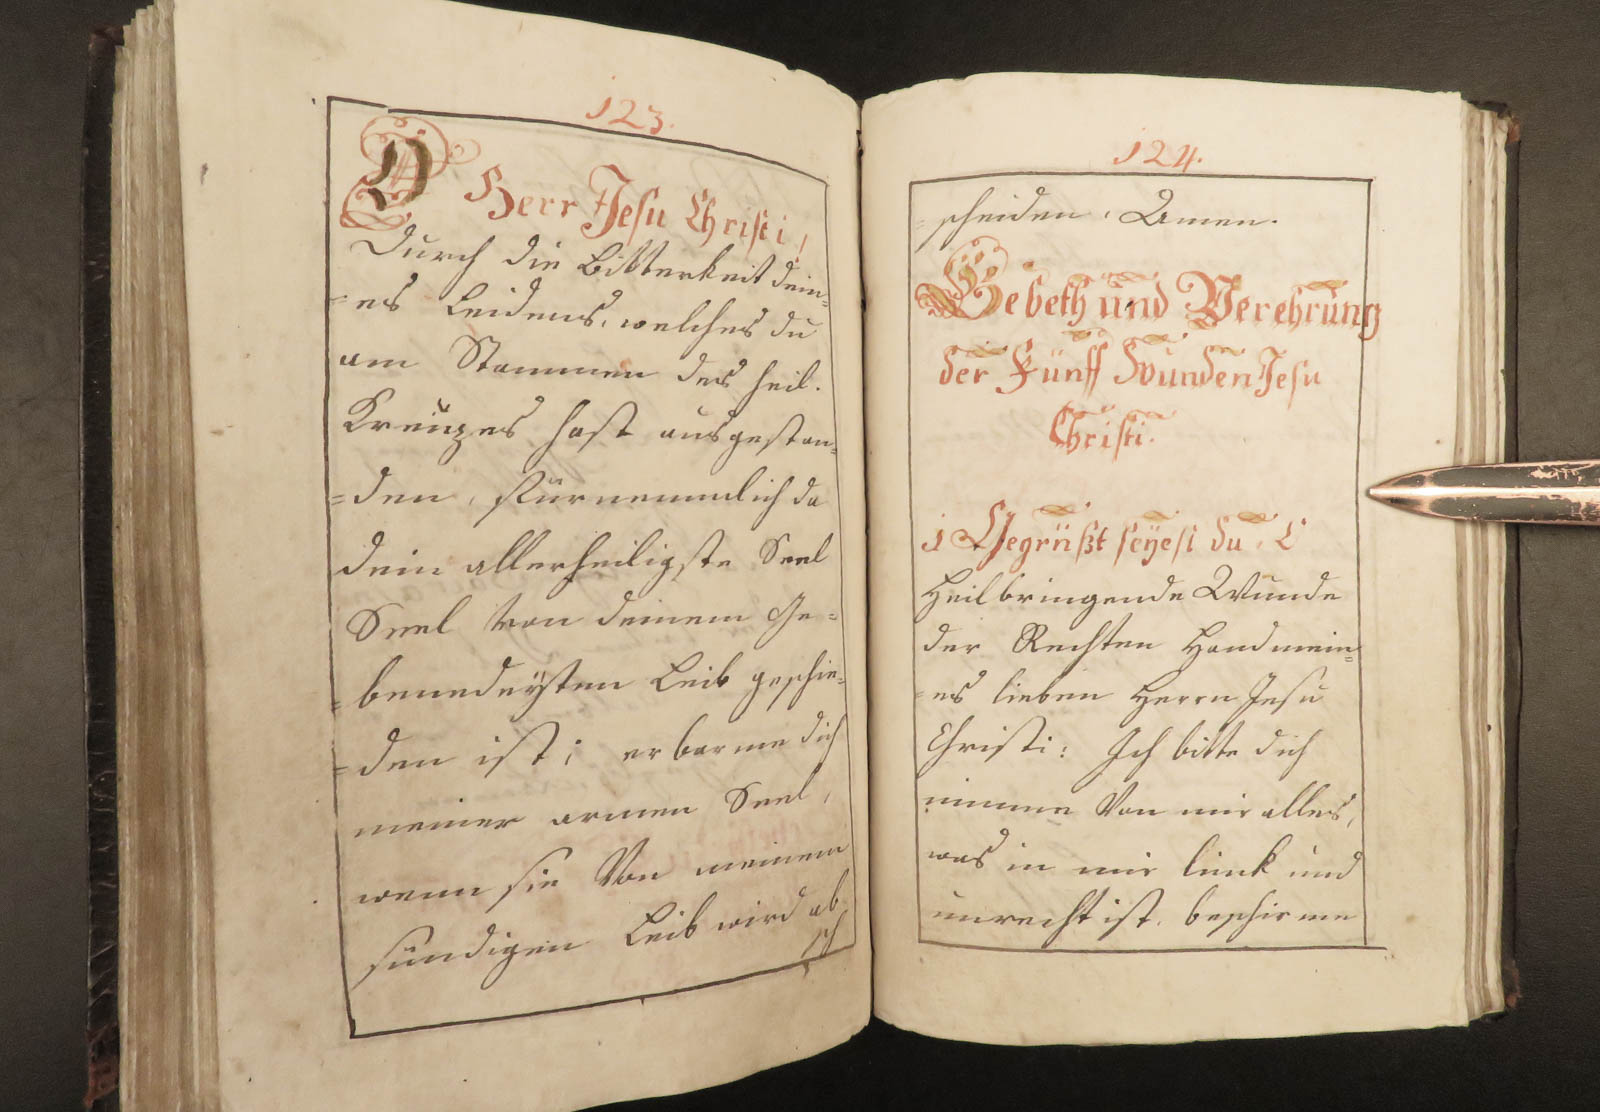 123.
O Herr Jesu Christi!
Durch die Bitterkeit dein=
=es Leidens, welches du
am Stammen des heil.
Kreuzes hast ausgestan=
=den, fürnemmlich da
dein allerheiligste Seel
Seel von deinem Ge=
=benedeÿten Leib geschie=
=den ist; erbarme dich
meiner armen Seel,
wenn sie Von meinem
sündigen Leib wird ab
sch
124.
=scheiden, Amen.
Gebeth und Verehrung
der Fünff Wunden Jesu
Christi.
1 Gegrüßt seÿest du, O
Heilbringende Wunde
der Rechten Hand mein=
=es lieben Herrn Jesu
Christi: Ich bitte dich
nimme Von mir alles,
was in mir linck und
unrecht ist, beschirme